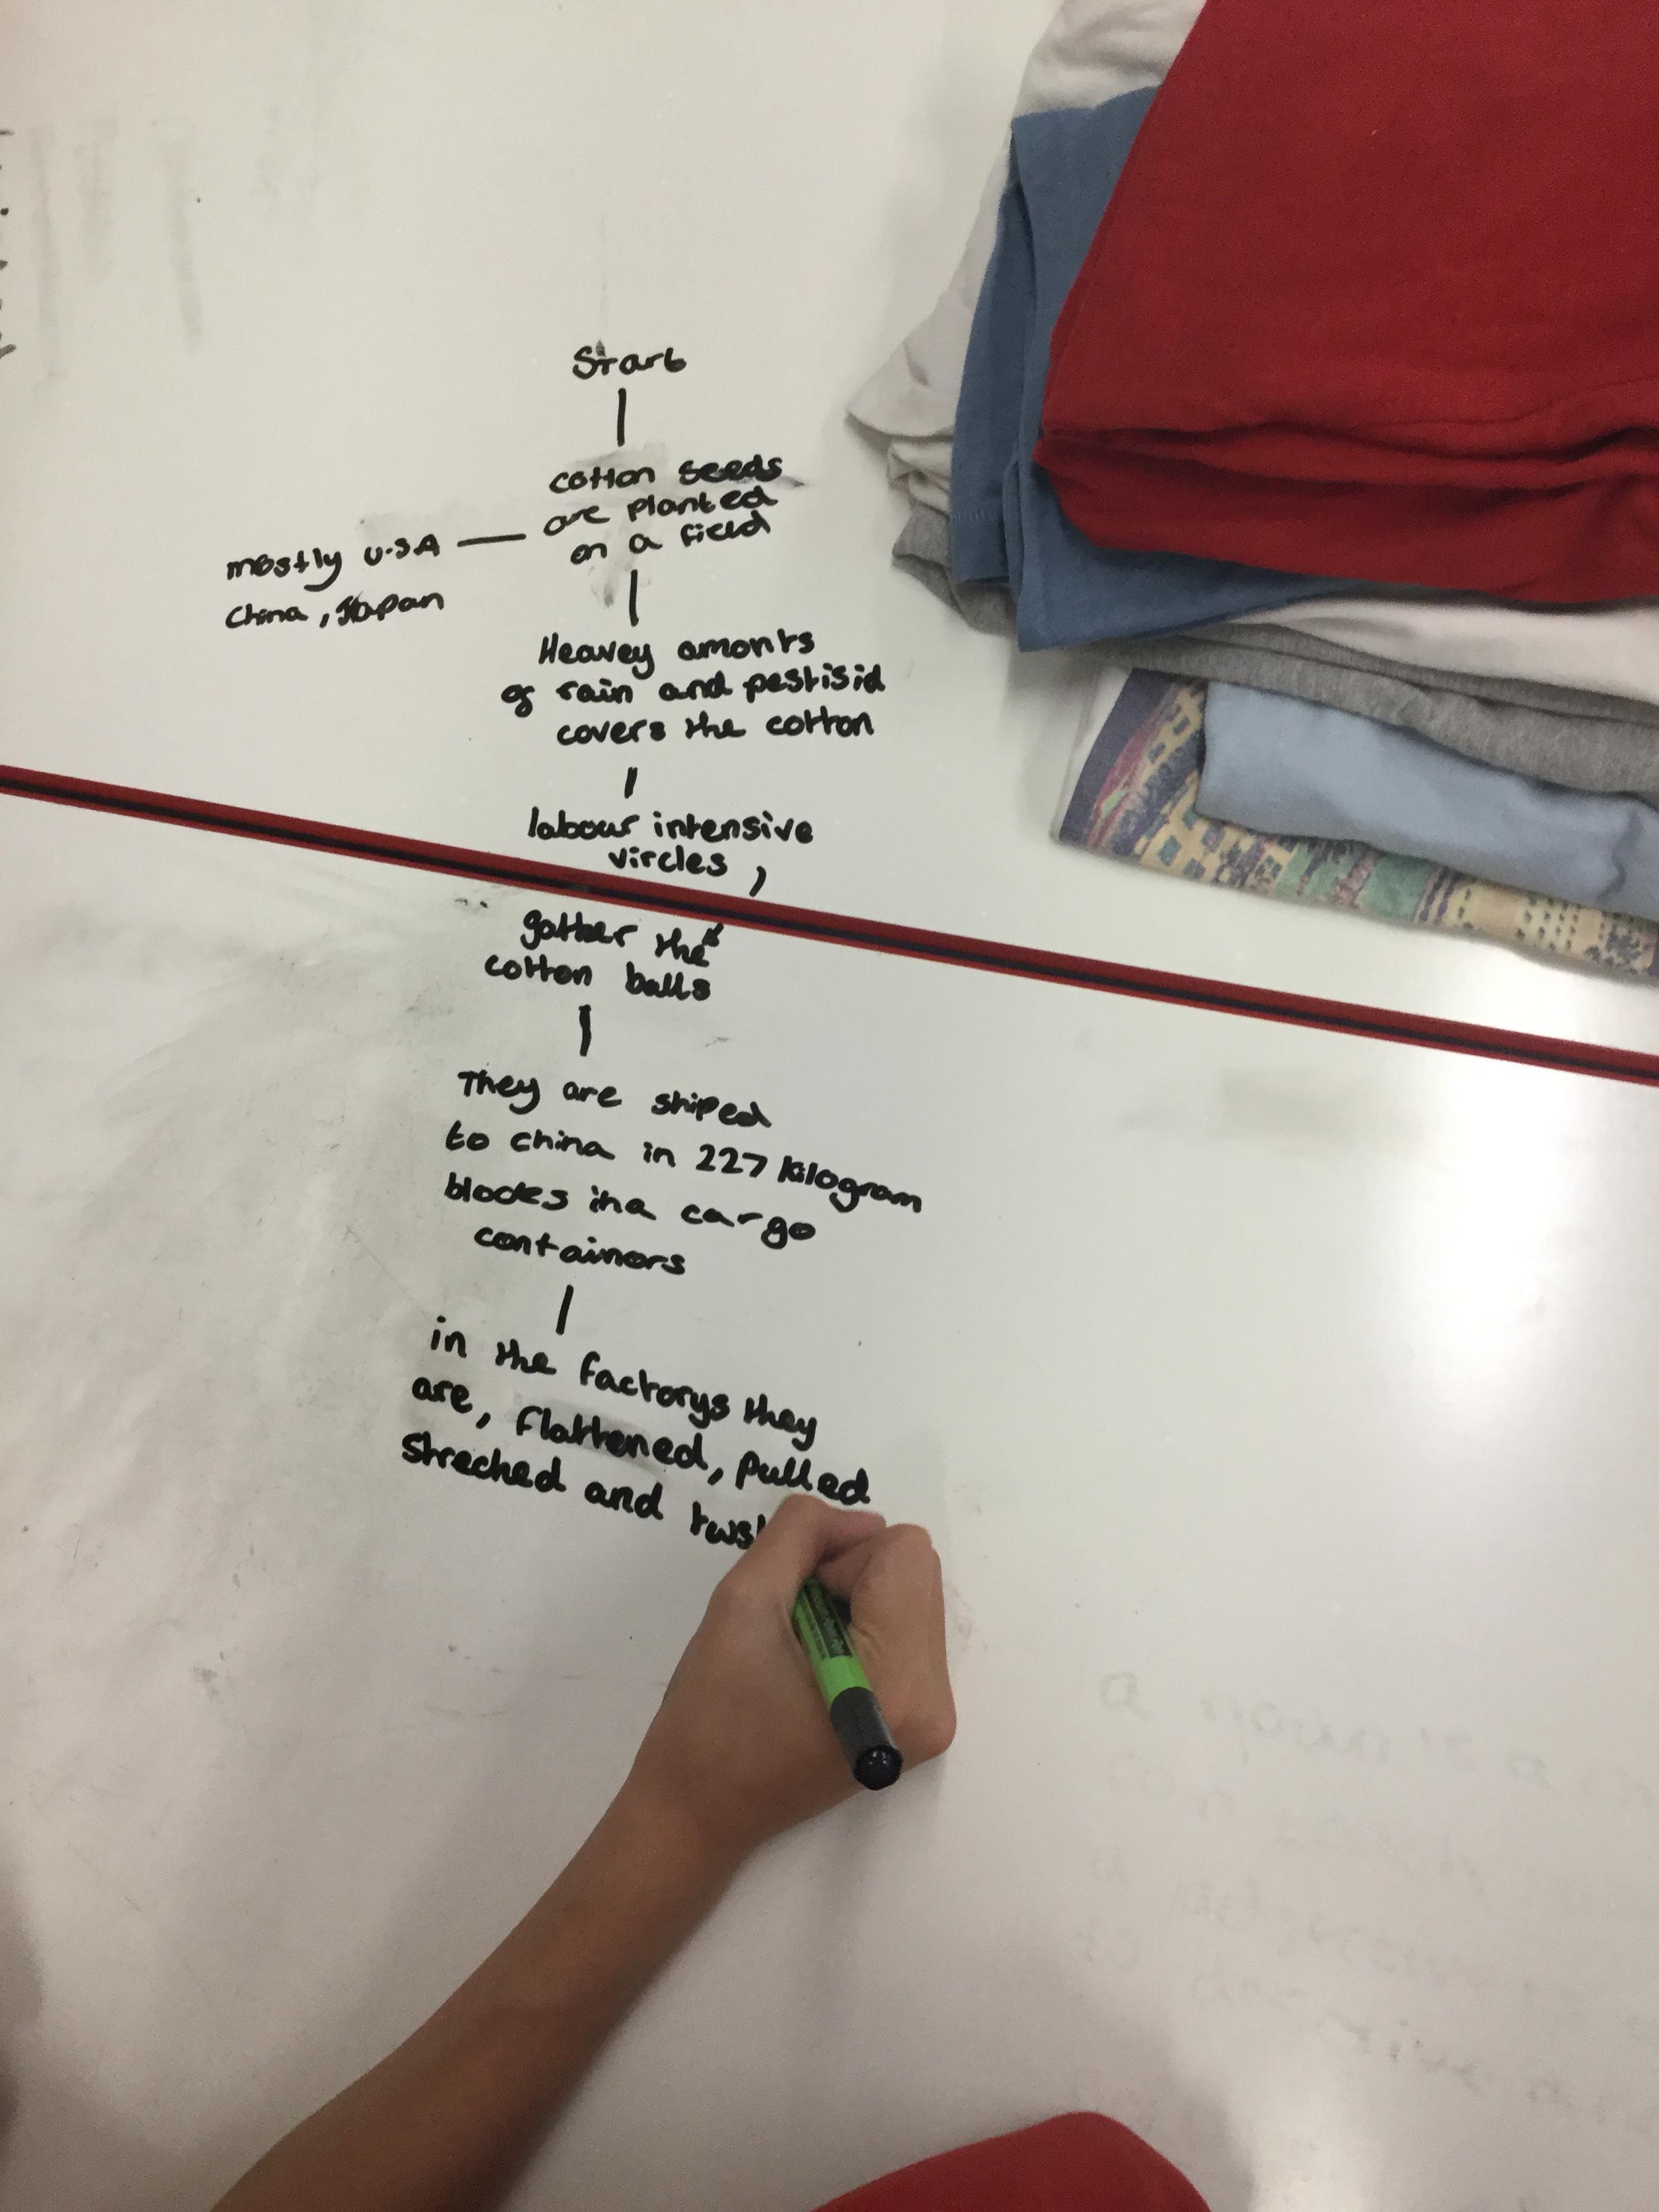 Start
cotton seeds
are planted
on a field
mostly U.S.A
China, Japan
Heavey amonts
of rain and pestisid
covers the cotton
labour intensive
vircles,
gather the
cotton balls
They are shiped
to china in 227 kilogram
blockes in a cargo
containors
in the factorys they
are, flattened, pulled
streched and